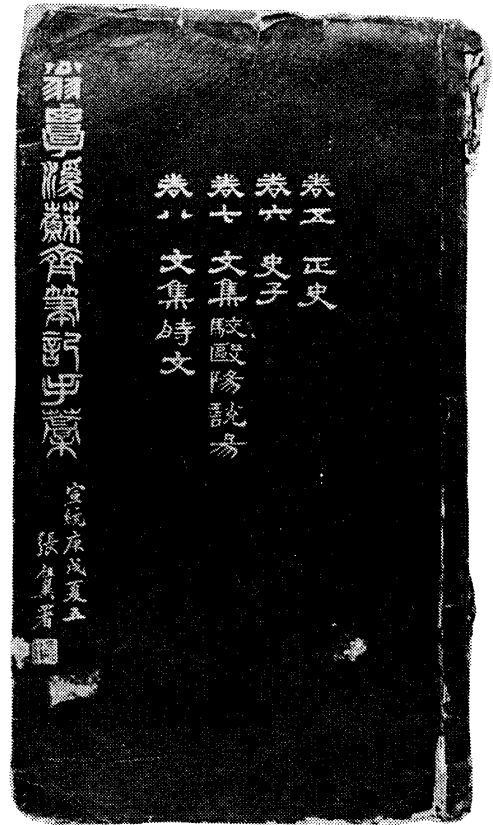 卷五　正史
卷六　史子
卷七　文集駮歐陽說易
卷八　文集時文
翁覃溪蘇齊筆記手藁
宣統庚戌夏五
張祖翼署